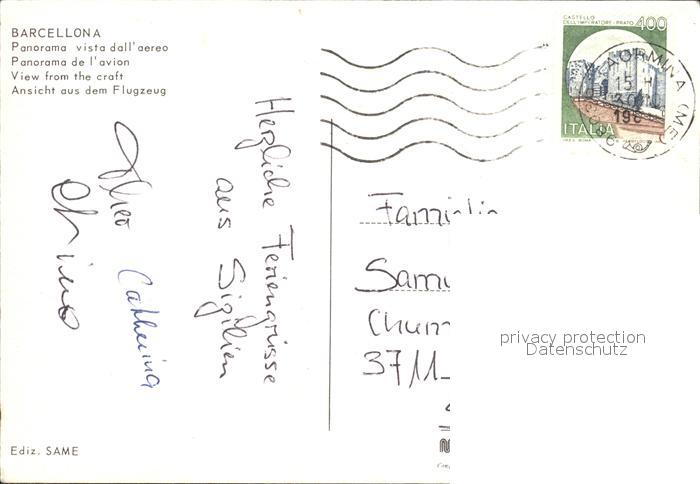 BARCELLONA
Panorama vista dall'aereo
Panorama de l'avion
View from the craft
Ansicht aus dem Flugzeug
CASTELLO
DELL'IMPERATORE - PRATO 400
ITALIA
TAORMINA (ME)
15 H
198
Herzliche Feriengrüsse
aus Sizilien
Catherina
Familie
Samu
Chum
3711
privacy protection
Datenschutz
Ediz. SAME